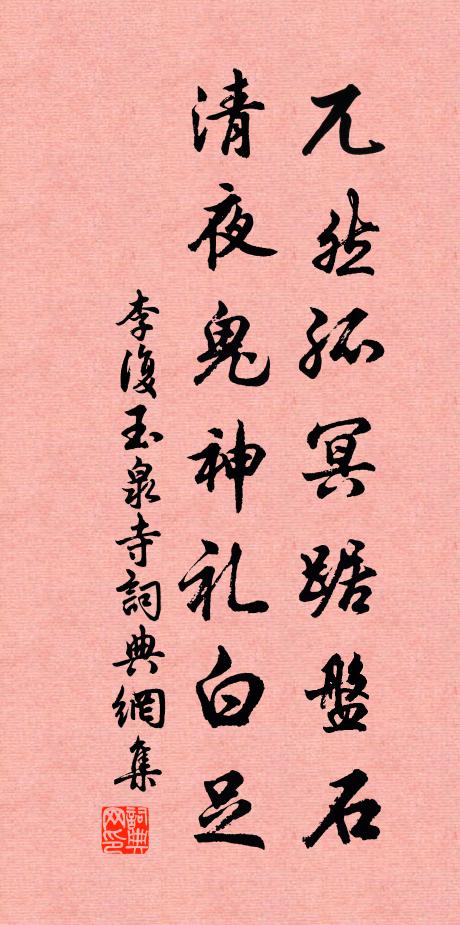 兀然孤冥踞盤石
清夜鬼神礼白足
李復玉泉寺詞典網集
詞典网印